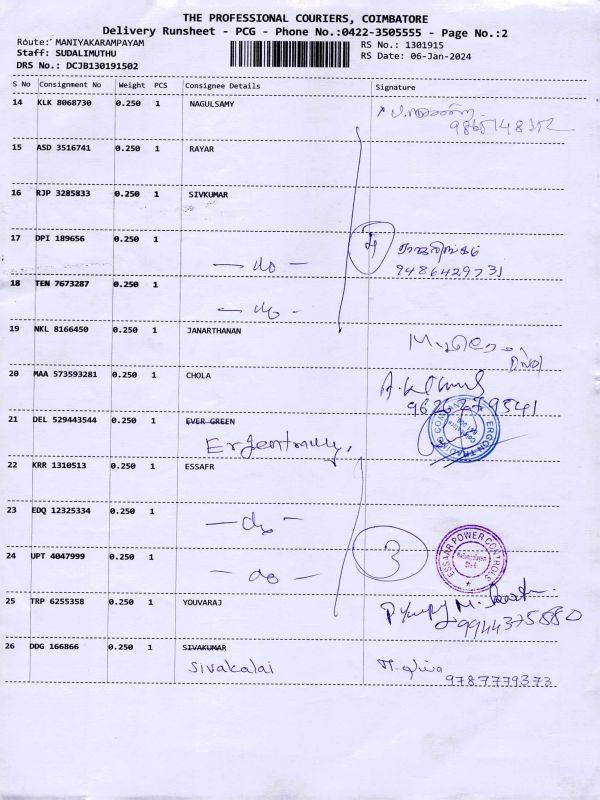 THE PROFESSIONAL COURIERS, COIMBATORE
Delivery Runsheet - PCG - Phone No.:0422-3505555 - Page No.:2
Route: MANIYAKARAMPAYAM
Staff: SUDALIMUTHU
DRS No.: DCJB130191502
RS No.: 1301915
RS Date: 06-Jan-2024
S No Consignment No Weight PCS Consignee Details Signature
14 KLK 8068730 0.250 1 NAGULSAMY
15 ASD 3516741 0.250 1 RAYAR
16 RJP 3285833 0.250 1 SIVKUMAR
17 DPI 189656 0.250 1
4
— do —
9486429731
18 TEN 7673287 0.250 1
— do —
19 NKL 8166450 0.250 1 JANARTHANAN
20 MAA 573593281 0.250 1 CHOLA
21 DEL 529443544 0.250 1 EVER GREEN
ERGON TRADING
22 KRR 1310513 0.250 1 ESSAFR
23 EDQ 12325334 0.250 1
— do —
3
ESSAAR POWER CONTROLS
24 UPT 4047999 0.250 1
— do —
25 TRP 6255358 1 YOUVARAJ
0.250
26 DDG 166866 0.250 1 SIVAKUMAR
Sivakalai
9787779373